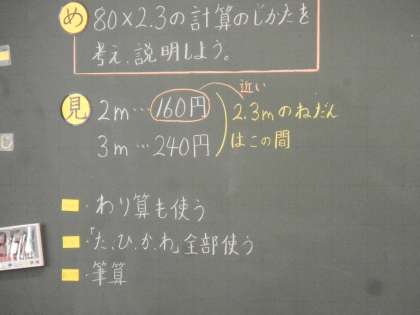 め 80×2.3の計算のしかたを
考え、説明しよう。
近い
見 2m…160円
3m…240円
2.3mのねだん
はこの間
・わり算も使う
・「た、ひ、か、わ」全部使う
・筆算